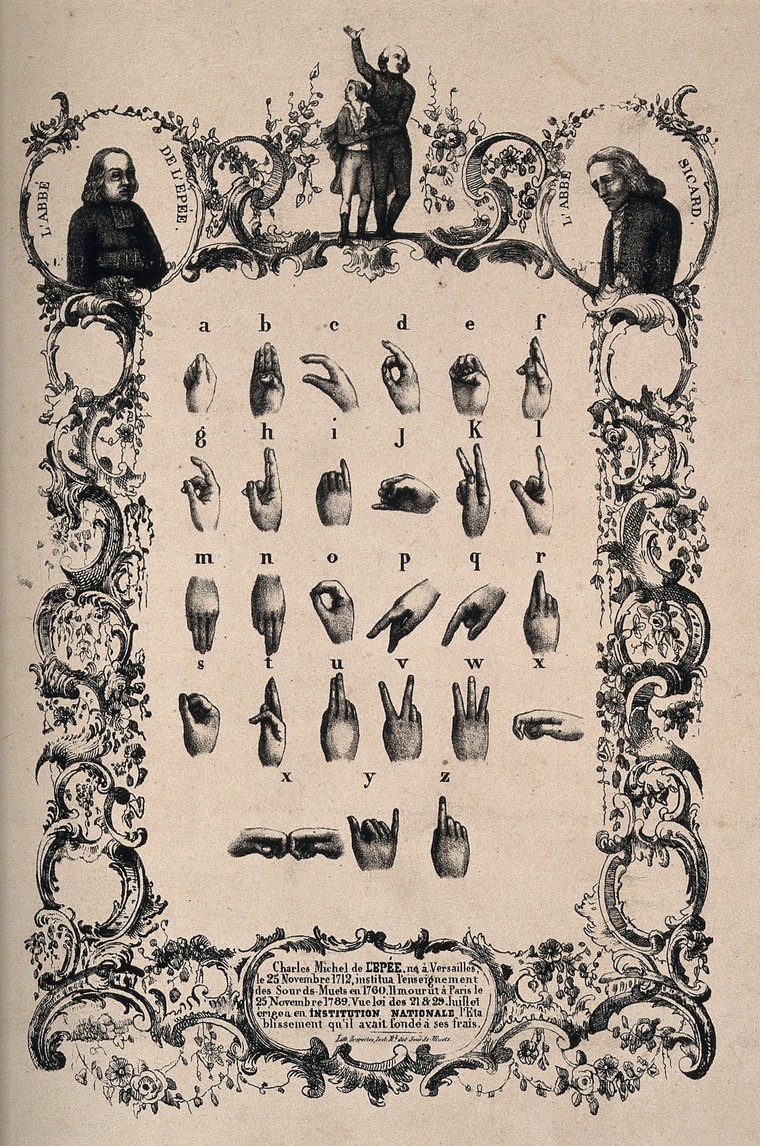 L'ABBÉ DE L'EPÉE.
L'ABBÉ SICARD.
a b c d e f
g h i J K l
m n o p q r
s t u v w x
x y z
Charles Michel de L'EPÉE, né à Versailles,
le 25 Novembre 1712, institua l'enseignement
des Sourds-Muets en 1760. Il mourut à Paris le
25 Novembre 1789. Vue loi des 21 & 29 Juillet
érigea en INSTITUTION NATIONALE l'Eta
blissement qu'il avait fondé à ses frais.
des Sourds-Muets.